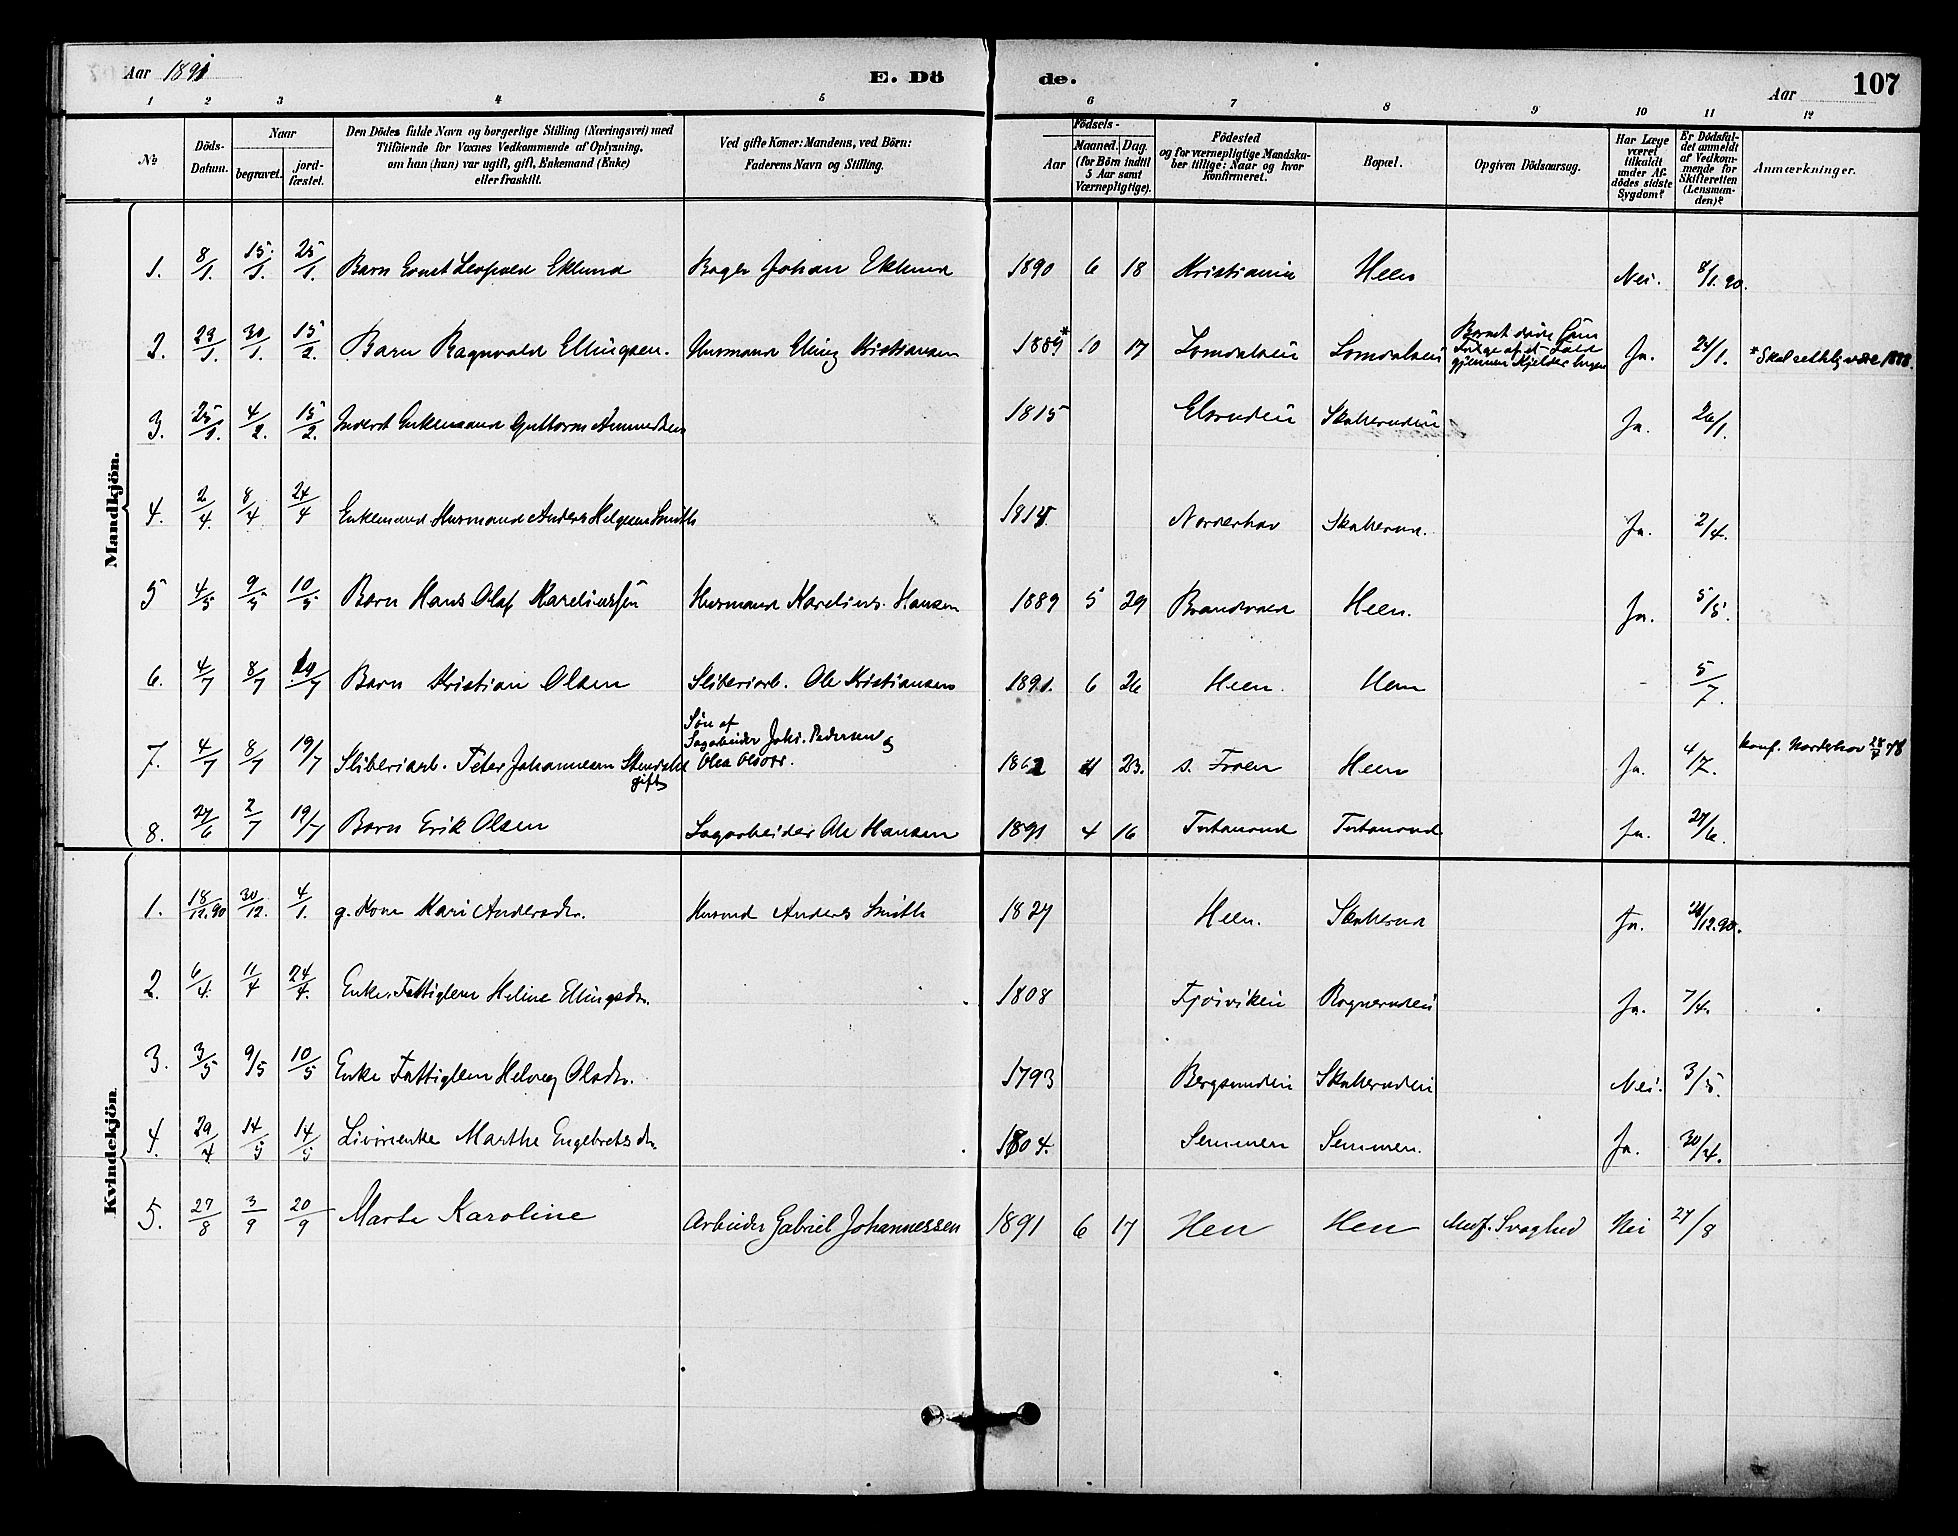 Aar 1891
E. Dö
de.
Aar
107
1 2 3 4 5 6 7 8 9 10 11 12
No
Döds-Datum.
Naar
begravet.
jord-fæstet.
Den Dödes fulde Navn og borgerlige Stilling (Næringsvei) med
Tilföiende for Voxnes Vedkommende af Oplysning,
om han (hun) var ugift, gift, Enkemand (Enke)
eller fraskilt.
Ved gifte Koner: Mandens, ved Börn:
Faderens Navn og Stilling.
Födsels-
Aar
Maaned. Dag.
(for Börn indtil
5 Aar samt
Værnepligtige).
Födested
og for værnepligtige Mandska-
ber tillige: Naar og hvor
konfirmeret.
Bopæl.
Opgiven Dödsaarsag.
Har Læge
været
tilkaldt
under Af-
dödes sidste
Sygdom?
Er Dödsfal-
det anmeldt
af Vedkom-
mende for
Skifteretten
(Lensman-
den)?
Anmærkninger.
Mandkjön.
1. 8/1. 15/1. 25/1. Barn Ernst Leopold Eklund Bager Johan Eklund 1890 6 18 Kristiania Heen Nei. 8/1.90.
2. 23/1. 30/1. 15/2. Barn Ragnvald Ellingsen. Husmand Elling Kristiansen 1889* 10 17 Lomdalseie Lomdalseie Ja. 24/1. * Skal rettelig være 1888.
3. 25/1. 4/2. 15/2. Inderst Enkemand Guttorm Amundsen 1815 Elsrudeie Skaherudeie Ja. 26/1.
4. 2/4. 8/4 24/4 Enkemand Husmand Anders Helgesen Smith 1815 Norderhov Skaherud. Ja. 2/4.
5 4/5 9/5 10/5 Barn Hans Olaf Kareliussen Husmand Karelius Hansen 1889 5 29 Brandvold Heen. Ja. 5/5.
6. 4/7 8/7 19/7 Barn Kristian Olsen Sliberiarb. Ole Kristiansen 1891. 6 26 Heen. Heen - 5/7.
7. 4/7 8/7 19/7 Sliberiarb. Peter Johannesen gift Søn af Sagarbeider Johs. Pedersen og Olea Olsdtr. 1862 4 23. s. Froen Heen Ja. 4/7. konf. Norderhov 78
8. 27/6 2/7 19/7 Barn Erik Olsen Sagarbeider Ole Hansen 1891 4 16 Ja. 27/6.
Kvindekjön
1. 18/12.90 30/12. 4/1. g. Kone Kari Andersdtr. Husmd Anders Smith 1827 Heen. Skaherud Ja. /12.90.
2. 6/4. 11/4 24/4. Enke, Fattiglem Heline Ellingsdtr. 1808 Fjösviken Rognerudeie Ja. 7/4.
3. 3/5 9/5 10/5 Enke Fattiglem Helveg Olsdtr. 1793 Bergsundeie Skaherudeie Nei. 3/5.
4. 29/4. 14/5 14/5 Livörenke Marthe Engebretsdtr. 1804. Semmen Semmen. Ja. 30/4.
5. 27/8 3/9 20/9 Marte Karoline Arbeider Gabriel Johannessen 1891 6 17 Hen Hen Medf. Svaghed Nei 27/8